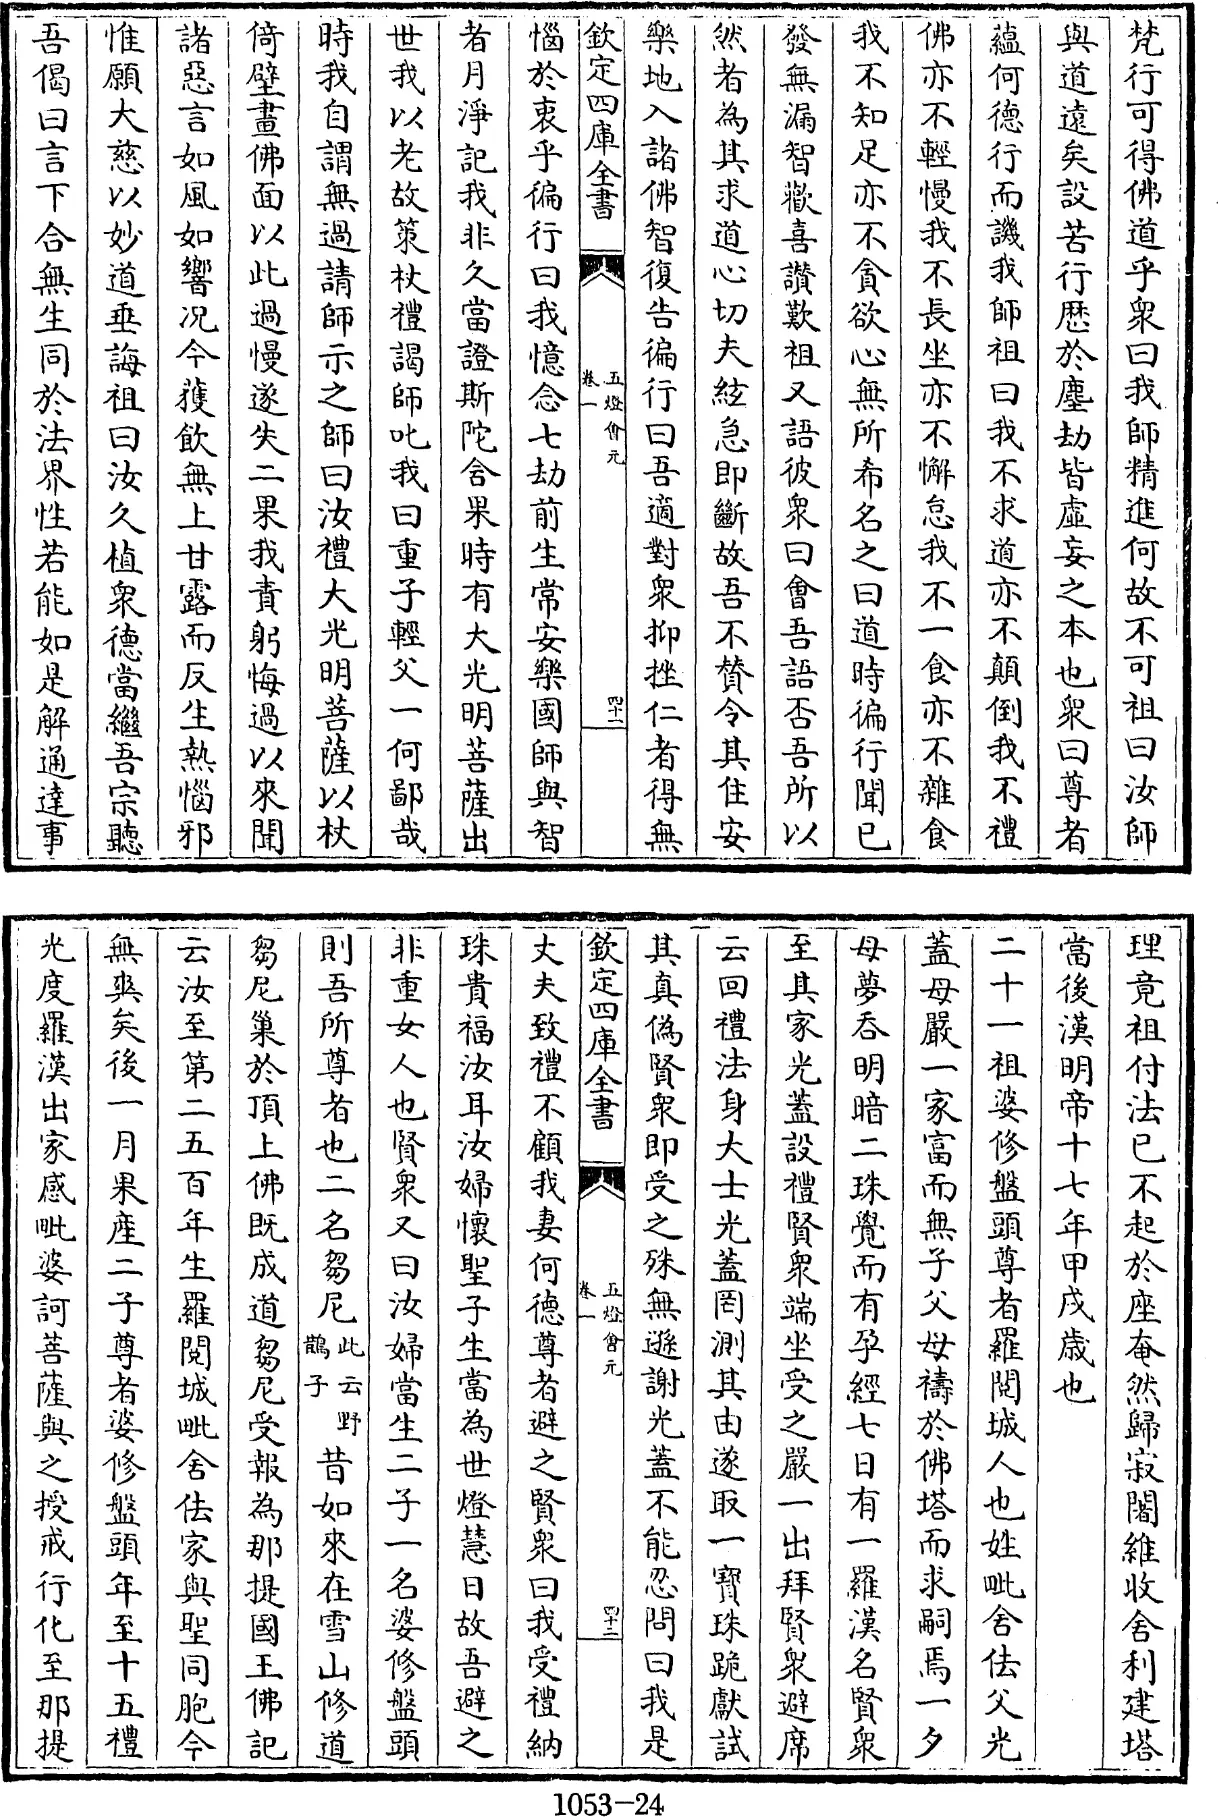 梵行可得佛道乎衆曰我師精進何故不可祖曰汝師
與道遠矣設苦行歷於塵劫皆虛妄之本也衆曰尊者
蘊何德行而譏我師祖曰我不求道亦不顛倒我不禮
佛亦不輕慢我不長坐亦不懈怠我不一食亦不雜食
我不知足亦不貪欲心無所希名之曰道時徧行聞已
發無漏智歡喜讚歎祖又語彼衆曰會吾語否吾所以
然者為其求道心切夫絃急即斷故吾不贊令其住安
樂地入諸佛智復告徧行曰吾適對衆抑挫仁者得無
欽定四庫全書
五燈會元
卷一
四十一
惱於衷乎徧行曰我憶念七劫前生常安樂國師與智
者月淨記我非久當證斯陀含果時有大光明菩薩出
世我以老故策杖禮謁師叱我曰重子輕父一何鄙哉
時我自謂無過請師示之師曰汝禮大光明菩薩以杖
倚壁畫佛面以此過慢遂失二果我責躬悔過以來聞
諸惡言如風如響況今獲飲無上甘露而反生熱惱邪
惟願大慈以妙道垂誨祖曰汝久植衆德當繼吾宗聽
吾偈曰言下合無生同於法界性若能如是解通達事
理竟祖付法已不起於座奄然歸寂闍維收舍利建塔
當後漢明帝十七年甲戌歲也
二十一祖婆修盤頭尊者羅閱城人也姓毗舍佉父光
蓋母嚴一家富而無子父母禱於佛塔而求嗣焉一夕
母夢吞明暗二珠覺而有孕經七日有一羅漢名賢衆
至其家光蓋設禮賢衆端坐受之嚴一出拜賢衆避席
云回禮法身大士光蓋罔測其由遂取一寶珠跪獻試
其真偽賢衆即受之殊無遜謝光蓋不能忍問曰我是
欽定四庫全書
五燈會元
卷一
四十二
丈夫致禮不顧我妻何德尊者避之賢衆曰我受禮納
珠貴福汝耳汝婦懷聖子生當為世燈慧日故吾避之
非重女人也賢衆又曰汝婦當生二子一名婆修盤頭
則吾所尊者也二名芻尼此云野鵲子昔如來在雪山修道
芻尼巢於頂上佛既成道芻尼受報為那提國王佛記
云汝至第二五百年生羅閱城毗舍佉家與聖同胞今
無爽矣後一月果產二子尊者婆修盤頭年至十五禮
光度羅漢出家感毗婆訶菩薩與之授戒行化至那提
1053-24